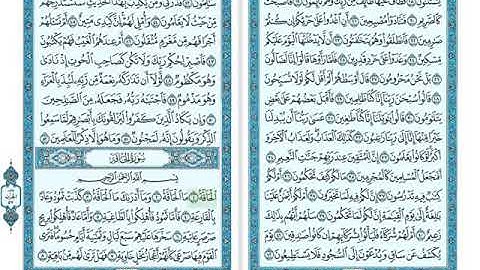 يَسْتَثْنُونَ ١٨ فَطَافَ عَلَيْهَا طَآئِفٌ مِّن رَّبِّكَ وَهُمْ نَآئِمُونَ ١٩ فَأَصْبَحَتْ
كَٱلصَّرِيمِ ٢٠ فَتَنَادَوْا۟ مُصْبِحِينَ ٢١ أَنِ ٱغْدُوا۟ عَلَىٰ حَرْثِكُمْ إِن كُنتُمْ
صَٰرِمِينَ ٢٢ فَٱنطَلَقُوا۟ وَهُمْ يَتَخَٰفَتُونَ ٢٣ أَن لَّا يَدْخُلَنَّهَا ٱلْيَوْمَ عَلَيْكُم
مِّسْكِينٌ ٢٤ وَغَدَوْا۟ عَلَىٰ حَرْدٍ قَٰدِرِينَ ٢٥ فَلَمَّا رَأَوْهَا قَالُوٓا۟ إِنَّا لَضَآلُّونَ ٢٦
بَلْ نَحْنُ مَحْرُومُونَ ٢٧ قَالَ أَوْسَطُهُمْ أَلَمْ أَقُل لَّكُمْ لَوْلَا تُسَبِّحُونَ ٢٨
قَالُوا۟ سُبْحَٰنَ رَبِّنَآ إِنَّا كُنَّا ظَٰلِمِينَ ٢٩ فَأَقْبَلَ بَعْضُهُمْ عَلَىٰ بَعْضٍ
يَتَلَٰوَمُونَ ٣٠ قَالُوا۟ يَٰوَيْلَنَآ إِنَّا كُنَّا طَٰغِينَ ٣١ عَسَىٰ رَبُّنَآ أَن يُبْدِلَنَا
خَيْرًا مِّنْهَآ إِنَّآ إِلَىٰ رَبِّنَا رَٰغِبُونَ ٣٢ كَذَٰلِكَ ٱلْعَذَابُ وَلَعَذَابُ ٱلْءَاخِرَةِ
أَكْبَرُ لَوْ كَانُوا۟ يَعْلَمُونَ ٣٣ إِنَّ لِلْمُتَّقِينَ عِندَ رَبِّهِمْ جَنَّٰتِ ٱلنَّعِيمِ ٣٤
أَفَنَجْعَلُ ٱلْمُسْلِمِينَ كَٱلْمُجْرِمِينَ ٣٥ مَا لَكُمْ كَيْفَ تَحْكُمُونَ ٣٦ أَمْ لَكُمْ
كِتَٰبٌ فِيهِ تَدْرُسُونَ ٣٧ إِنَّ لَكُمْ فِيهِ لَمَا تَخَيَّرُونَ ٣٨ أَمْ لَكُمْ أَيْمَٰنٌ عَلَيْنَا
بَٰلِغَةٌ إِلَىٰ يَوْمِ ٱلْقِيَٰمَةِ إِنَّ لَكُمْ لَمَا تَحْكُمُونَ ٣٩ سَلْهُمْ أَيُّهُم بِذَٰلِكَ
زَعِيمٌ ٤٠ أَمْ لَهُمْ شُرَكَآءُ فَلْيَأْتُوا۟ بِشُرَكَآئِهِمْ إِن كَانُوا۟ صَٰدِقِينَ ٤١ يَوْمَ
يُكْشَفُ عَن سَاقٍ وَيُدْعَوْنَ إِلَى ٱلسُّجُودِ فَلَا يَسْتَطِيعُونَ ٤٢
سَٰلِمُونَ ٤٣ فَذَرْنِى وَمَن يُكَذِّبُ بِهَٰذَا ٱلْحَدِيثِ سَنَسْتَدْرِجُهُم
مِّنْ حَيْثُ لَا يَعْلَمُونَ ٤٤ وَأُمْلِى لَهُمْ إِنَّ كَيْدِى مَتِينٌ ٤٥ أَمْ تَسْـَٔلُهُمْ
أَجْرًا فَهُم مِّن مَّغْرَمٍ مُّثْقَلُونَ ٤٦ أَمْ عِندَهُمُ ٱلْغَيْبُ فَهُمْ يَكْتُبُونَ
٤٧ فَٱصْبِرْ لِحُكْمِ رَبِّكَ وَلَا تَكُن كَصَاحِبِ ٱلْحُوتِ إِذْ نَادَىٰ
وَهُوَ مَكْظُومٌ ٤٨ لَّوْلَآ أَن تَدَٰرَكَهُۥ نِعْمَةٌ مِّن رَّبِّهِۦ لَنُبِذَ بِٱلْعَرَآءِ
وَهُوَ مَذْمُومٌ ٤٩ فَٱجْتَبَٰهُ رَبُّهُۥ فَجَعَلَهُۥ مِنَ ٱلصَّٰلِحِينَ
٥٠ وَإِن يَكَادُ ٱلَّذِينَ كَفَرُوا۟ لَيُزْلِقُونَكَ بِأَبْصَٰرِهِمْ لَمَّا سَمِعُوا۟
ٱلذِّكْرَ وَيَقُولُونَ إِنَّهُۥ لَمَجْنُونٌ ٥١ وَمَا هُوَ إِلَّا ذِكْرٌ لِّلْعَٰلَمِينَ ٥٢
سُورَةُ الحَاقَّةِ
بِسْمِ ٱللَّهِ ٱلرَّحْمَٰنِ ٱلرَّحِيمِ
ٱلْحَآقَّةُ ١ مَا ٱلْحَآقَّةُ ٢ وَمَآ أَدْرَىٰكَ مَا ٱلْحَآقَّةُ ٣ كَذَّبَتْ ثَمُودُ وَعَادٌۢ
بِٱلْقَارِعَةِ ٤ فَأَمَّا ثَمُودُ فَأُهْلِكُوا۟ بِٱلطَّاغِيَةِ ٥ وَأَمَّا عَادٌ فَأُهْلِكُوا۟ بِرِيحٍ
صَرْصَرٍ عَاتِيَةٍ ٦ سَخَّرَهَا عَلَيْهِمْ سَبْعَ لَيَالٍ وَثَمَٰنِيَةَ أَيَّامٍ حُسُومًا فَتَرَى
ٱلْقَوْمَ فِيهَا صَرْعَىٰ كَأَنَّهُمْ أَعْجَازُ نَخْلٍ خَاوِيَةٍ ٧ فَهَلْ تَرَىٰ لَهُم مِّنۢ بَاقِيَةٍ ٨